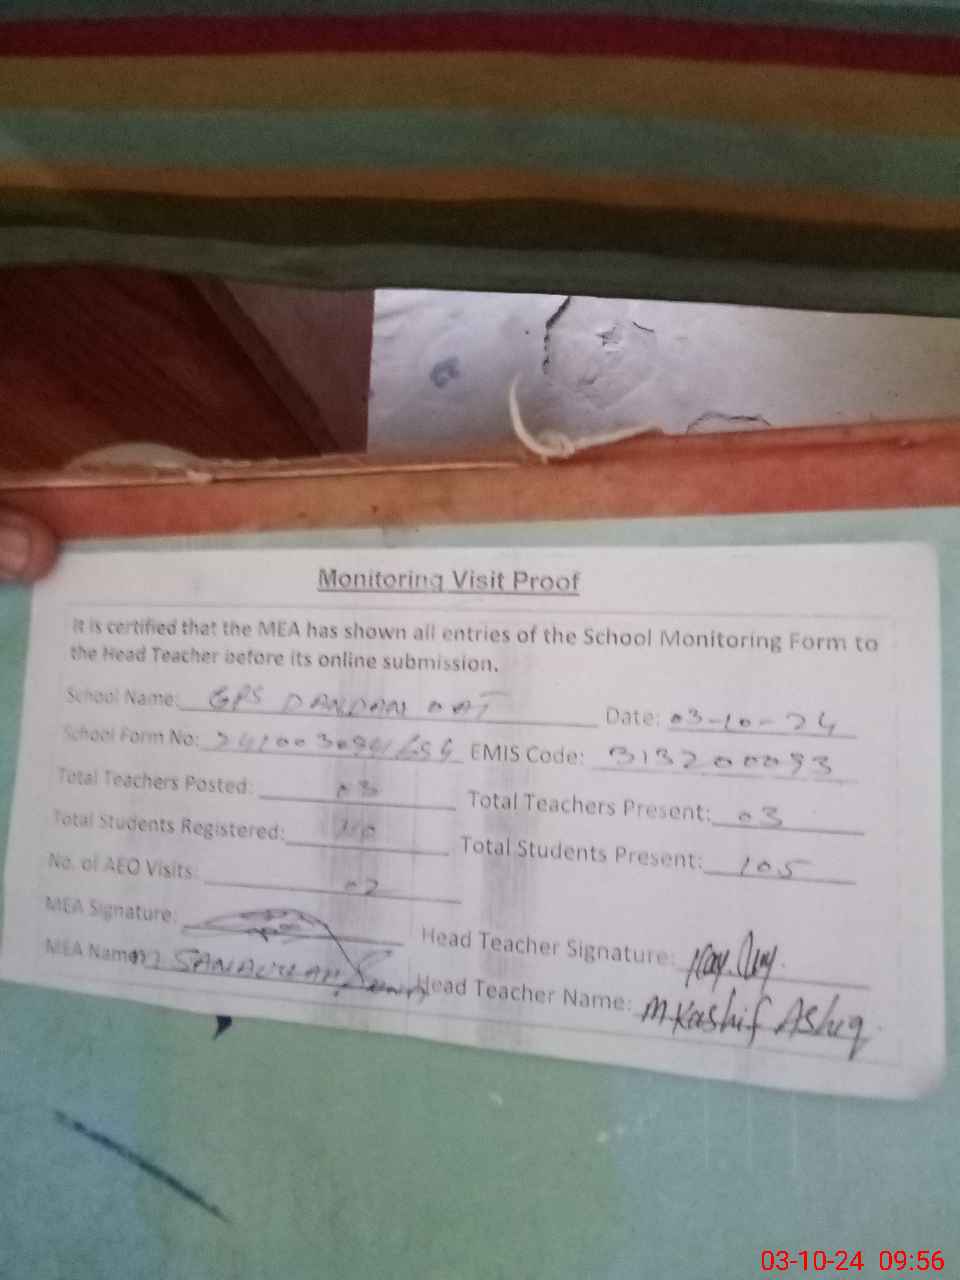 Monitoring Visit Proof
It is certified that the MEA has shown all entries of the School Monitoring Form to
the Head Teacher before its online submission.
School Name: GPS DANDAN Date: 03-10-24
School Form No: EMIS Code: 313200093
Total Teachers Posted: 03 Total Teachers Present: 03
Total Students Registered: Total Students Present: 105
No. of AEO Visits: 02
MEA Signature: Head Teacher Signature:
MEA Name: SANAULLAH Head Teacher Name: M. Kashif Ashiq
03-10-24 09:56